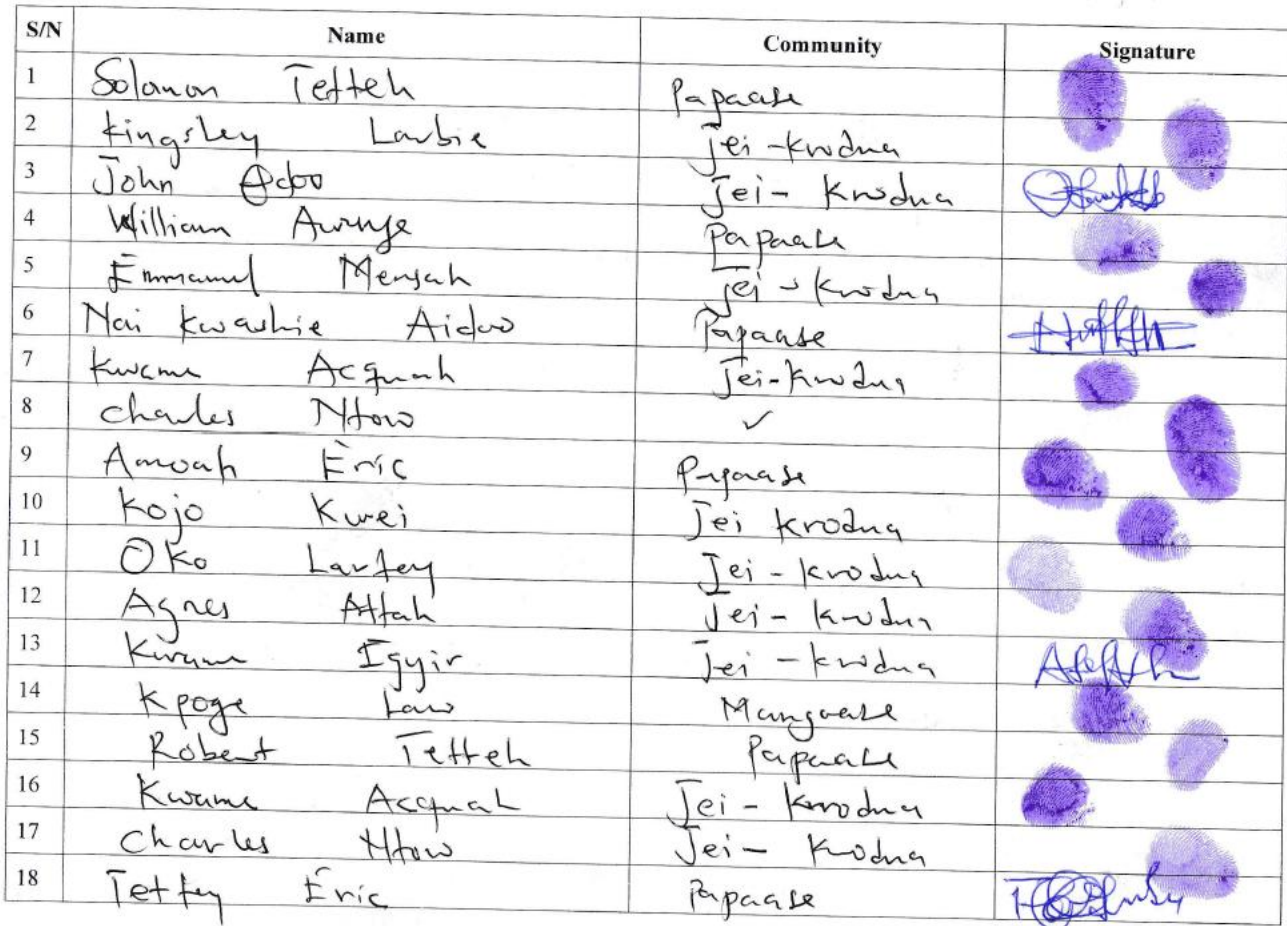 S/N Name Community Signature
1 Solomon Tetteh Papaase
2 Kingsley Larbie Jei-Krodua
3 John Adoo Jei-Krodua
4 William Papaase
5 Emmanuel Mensah Jei-Krodua
6 Nai Kwashie Aidoo Papaase
7 Kwame Acquah Jei-Krodua
8 Charles Ntow ✓
9 Amoah Eric Papaase
10 Kojo Kwei Jei Krodua
11 Oko Lartey Jei-Krodua
12 Agnes Attah Jei-Krodua
13 Kwame Egyir Jei-Krodua
14 Kpoge Law Mangoase
15 Robert Tetteh Papaase
16 Kwame Acquah Jei-Krodua
17 Charles Ntow Jei-Krodua
18 Tettey Eric Papaase